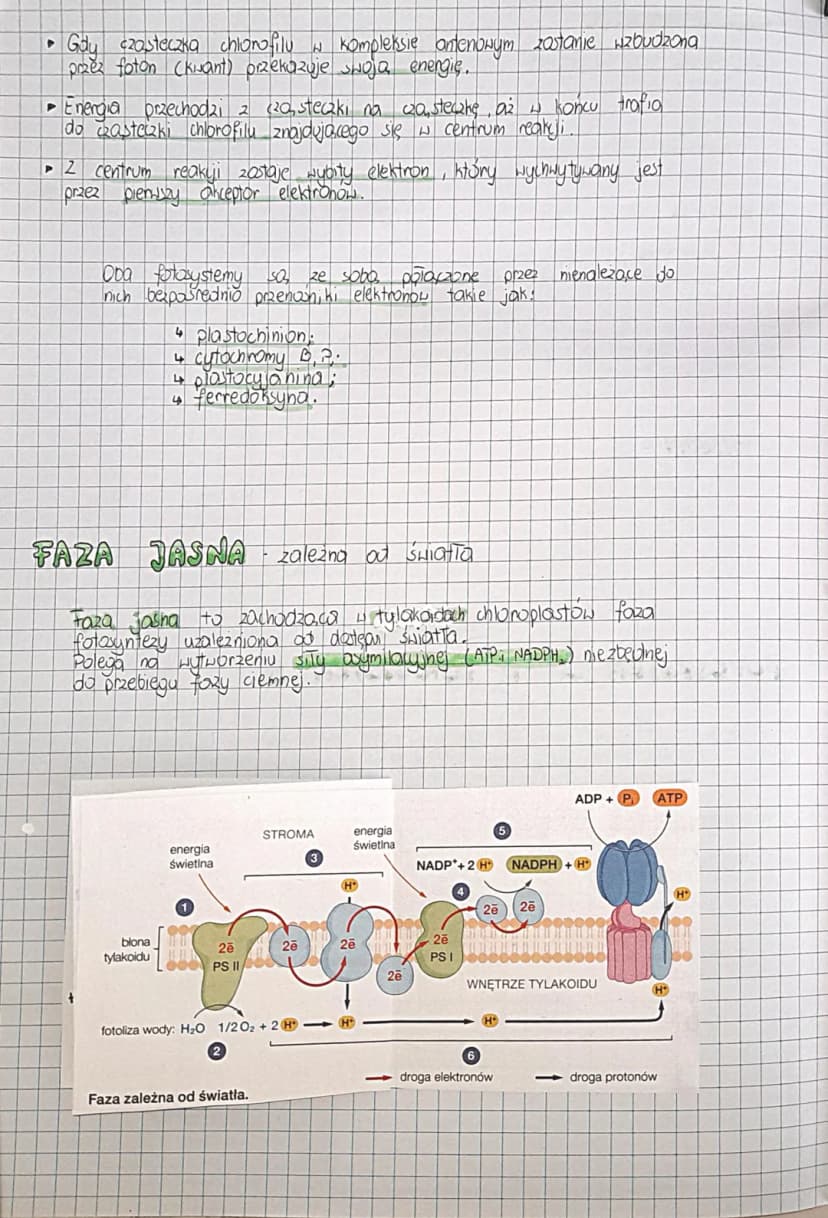 • Gdy cząsteczka chlorofilu w kompleksie antenowym zostanie wzbudzona
przez foton (kwant) przekazuje swoją energię.
▸ Energia przechodzi z cząsteczki na cząsteczkę, aż w końcu trafia
do cząsteczki chlorofilu znajdującego się w centrum reakcji.
▸ Z centrum reakcji zostaje wybity elektron, który wychwytywany jest
przez pierwszy akceptor elektronów.
Oba fotosystemy są ze sobą połączone przez nienależące do
nich bezpośrednio przenośniki elektronów takie jak:
↳ plastochinion;
↳ cytochromy
↳ plastocyjanina;
↳ ferredoksyna.
FAZA JASNA - zależna od światła
Faza jasna to zachodząca w tylakoidach chloroplastów faza
fotosyntezy uzależniona od dostępu światła.
Polega na wytworzeniu siły asymilacyjnej (ATP i NADPH₂) niezbędnej
do przebiegu fazy ciemnej.
ADP + Pᵢ ATP
STROMA
energia
świetlna
5
energia
świetlna
3
NADP⁺+ 2 H⁺ NADPH + H⁺
H⁺
4
H⁺
1
2ē 2ē
błona
tylakoidu
2ē
PS II
2ē
2ē
2ē
PS I
2ē
WNĘTRZE TYLAKOIDU
H⁺
fotoliza wody: H₂O 1/2 O₂ + 2 H⁺ H⁺ H⁺
2
6
droga elektronów droga protonów
Faza zależna od światła.